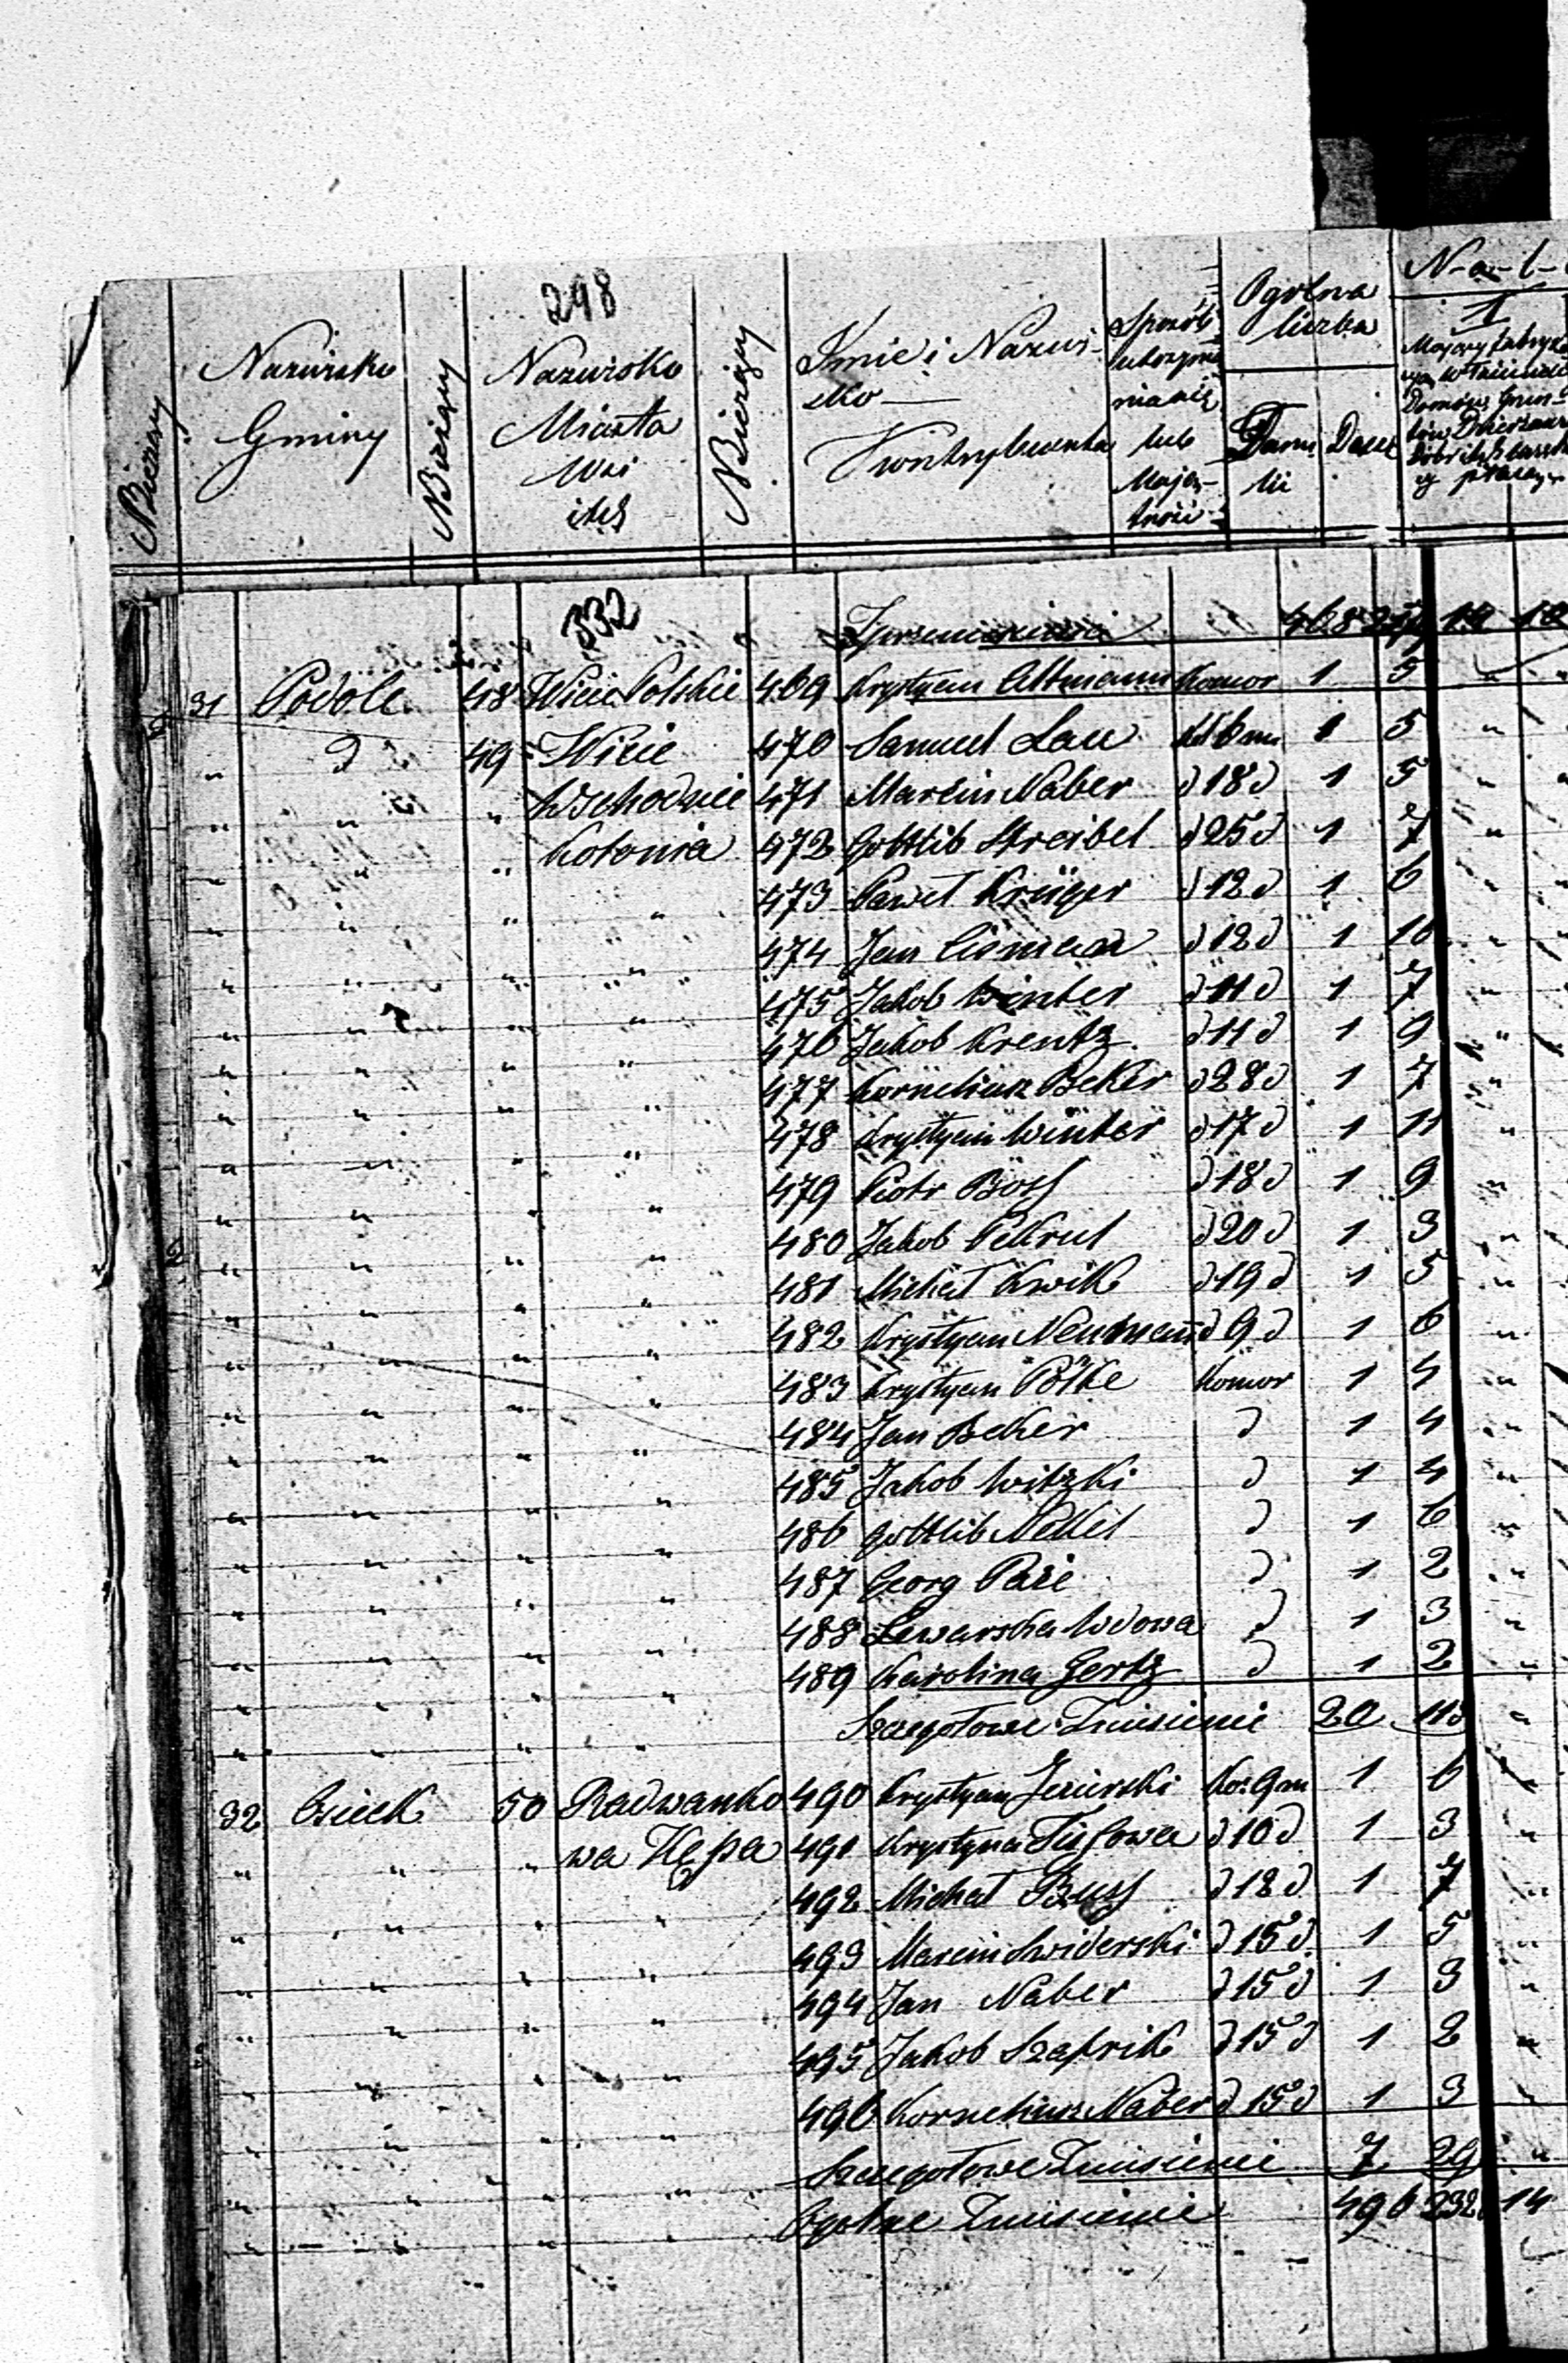 248
N Bieżący
Nazwisko Gminy
N Bieżący
Nazwisko Miasta Wsi itd
N Bieżący
Imie i Nazwisko Kontrybuenta
Sposób utrzymania lub Majętności
Ogólna liczba
Familii
Dusz
N-a-l-
1
332
Z przeniesienia 468
31 Podole 48 Wicie Polskie 469 Krystyan Altmann Komor 1 5 "
" d 49 Wicie 470 Samuel Lau 1 5 "
" " " Wschodnie 471 Marcin Naber d 18 d 1 5 "
" " " Kolonia 472 Gottlib Streibel d 25 d 1 7 "
" " " " 473 Paweł Krüger d 12 d 1 6 "
" " " " 474 Jan d 12 d 1 10 "
" " " " 475 Jakob Winter d 11 d 1 7 "
" " " " 476 Jakob Krentz d 11 d 1 9 "
" " " " 477 Korneliusz Beker d 28 d 1 7 "
" " " " 478 Krystyan Winter d 17 d 1 11 "
" " " " 479 Piotr d 18 d 1 9 "
" " " " 480 Jakob Pekrul d 20 d 1 3 "
" " " " 481 Michał Kwik d 19 d 1 5 "
" " " " 482 Krystyan Neumann d 9 d 1 6 "
" " " " 483 Krystyan Komor 1 4 "
" " " " 484 Jan Beker d 1 4 "
" " " " 485 Jakob Witzki d 1 4 "
" " " " 486 Gottlib d 1 6 "
" " " " 487 Georg d 1 2 "
" " " " 488 Lewarska Wdowa d 1 3 "
" " " " 489 Karolina Gertz d 1 2 "
Szczegółowe Zniesienie 20 113 "
32 Osieck 50 Radwanko 490 Krystyan Jezierski 1 6
" " " wa Kępa 491 Krystyna d 10 d 1 3 "
492 Michał Buss d 12 d 1 7 "
" " " " 493 Marcin Swiderski d 15 d 1 5 "
" " " " 494 Jan Naber d 15 d 1 3 "
" " " " 495 Jakob Szafrik d 15 d 1 2 "
" " " " 496 Korneliusz Naber d 15 d 1 3 "
Szczegółowe Zniesienie 7 29 "
Ogólne Zniesienie 496 14